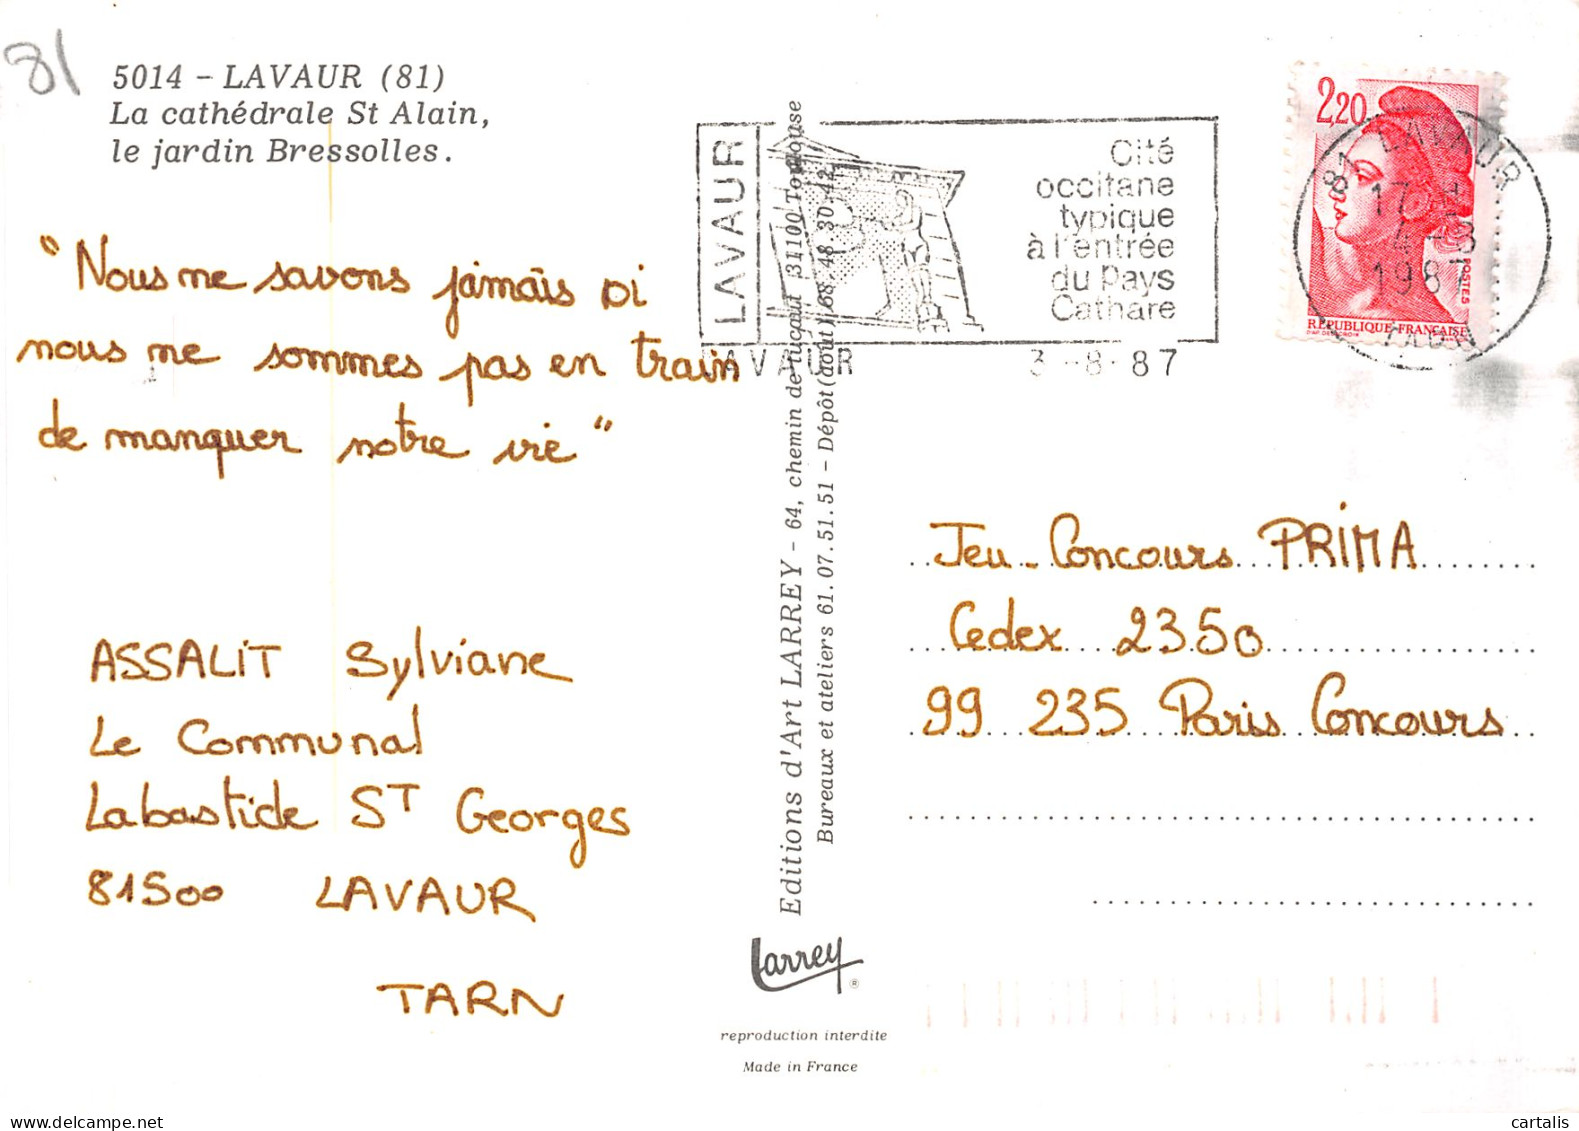 81
5014 - LAVAUR (81)
La cathédrale St Alain,
le jardin Bressolles.
"Nous ne savons jamais si
nous ne sommes pas en train
de manquer notre vie"
ASSALIT Sylviane
Le Communal
Labastide ST Georges
81500 LAVAUR
TARN
LAVAUR
Cité
occitane
typique
à l'entrée
du Pays
Cathare
LAVAUR 3-8-87
Editions d'Art LARREY - 64, chemin de Tucaut 31100 Toulouse
Bureaux et ateliers 61.07.51.51 - Dépôt (août) 68.48.30.42
Larrey
®
reproduction interdite
Made in France
2,20
POSTES
RÉPUBLIQUE FRANÇAISE
81 LAVAUR
17 H
4-8
1987
TARN
Jeu-Concours PRIMA
Cedex 2350
99 235 Paris Concours
cartalis